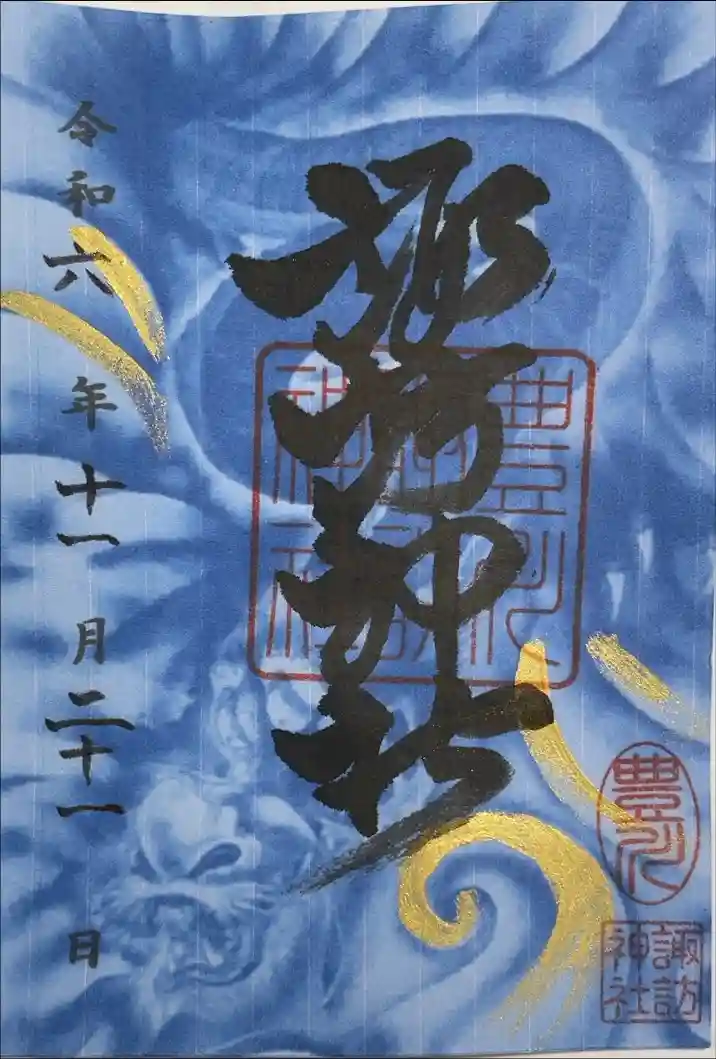 諏訪神社
令和六年十一月二十一日
諏訪
神社
諏訪
神社